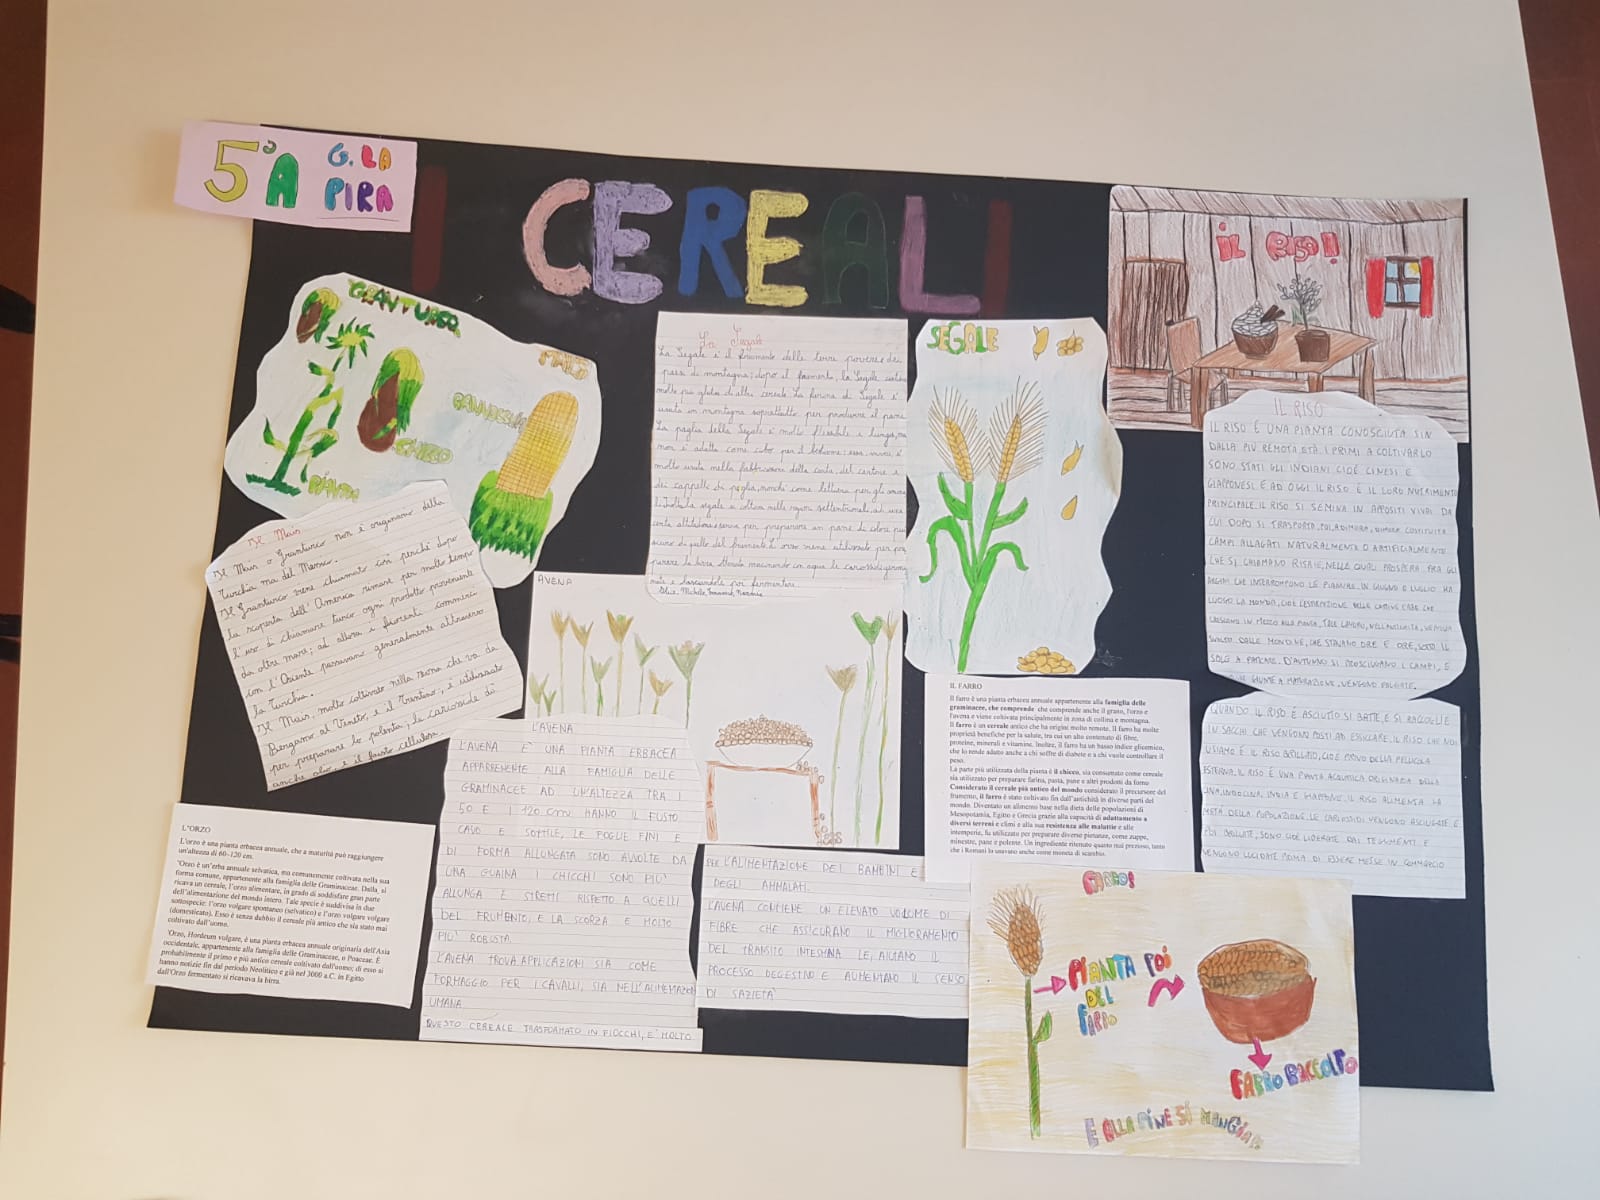 5ª A
G. LA
PIRA
I CEREALI
GRANTURCO
MAIS
PANNOCCHIA
CHICCO
PIANTA
Il Mais
Il Mais o Granturco non è originario della
Turchia ma del Messico.
Il Granturco viene chiamato così perché dopo
la scoperta dell'America rimase per molto tempo
l'uso di chiamare turco ogni prodotto proveniente
da oltre mare; ad allora i fiorenti commerci
con l'Oriente passavano generalmente attraverso
la Turchia.
Il Mais, molto coltivato nella zona che va da
Bergamo al Veneto, e il Trentino, è utilizzato
per preparare la polenta; la cariosside dà
anche olio, e il fusto cellulosa.
La Segale
La Segale è il frumento delle terre povere dei
paesi di montagna; dopo il frumento, la Segale contiene
molto più glutei di altri cereale. La farina di Segale è
usata in montagna soprattutto per produrre il pane
La paglia della Segale è molto flessibile e lunga, ma
non si adatta come cibo per il bestiame; essa invece, è
molto usata nella fabbricazione della carta, del cartone e
dei cappelli di paglia, nonché come lettiera per gli animali
Inoltre la segale si coltiva nelle regioni settentrionali, ad una
certa altitudine serve per preparare un pane di colore più
scuro di quello del frumento. L'orzo viene utilizzato per pre
parare la birra macinando con acqua le cariossidi germi
nate e lasciandole poi fermentare.
SEGALE
IL RISO!
IL RISO
IL RISO È UNA PIANTA CONOSCIUTA SIN
DALLA PIÙ REMOTA ETÀ. I PRIMI A COLTIVARLO
SONO STATI GLI INDIANI CIOÈ CINESI E
GIAPPONESI E AD OGGI IL RISO È IL LORO NUTRIMENTO
PRINCIPALE. IL RISO SI SEMINA IN APPOSITI VIVAI DA
CUI DOPO SI TRASPORTA, POI, A DIMORA, DIMORE COSTITUITA
CAMPI ALLAGATI NATURALMENTE O ARTIFICIALMENTE
CHE SI CHIAMANO RISAIE, NELLE QUALI PROSPERA, FRA GLI
ARGINI CHE INTERROMPONO LE PIANURE. IN GIUGNO E LUGLIO HA
LUOGO LA MONDA, CIOÈ L'ESTIRPAZIONE DELLE CATTIVE ERBE CHE
CRESCONO IN MEZZO ALLA PIANTA, TALE LAVORO, NELL'ANTICHITÀ, VENIVA
SVOLTO DALLE MONDINE, CHE STAVANO ORE E ORE, SOTTO IL
SOLE A FATICARE. D'AUTUNNO SI PROSCIUGANO I CAMPI, E
GIUNTE A MATURAZIONE, VENGONO FALCIATE.
QUANDO IL RISO È ASCIUTTO SI BATTE, E SI RACCOGLIE
IN SACCHI CHE VENGONO POSTI AD ESSICCARE. IL RISO CHE NOI
USIAMO È IL RISO BRILLATO, CIOÈ PRIVO DELLA PELLICOLA
ESTERNA. IL RISO È UNA PIANTA ACQUATICA ORIGINARIA DELLA
CINA, INDOCINA, INDIA E GIAPPONE. IL RISO ALIMENTA LA
METÀ DELLA POPOLAZIONE. LE CARIOSSIDI VENGONO ASCIUGATE E
POI BRILLATE, SONO CIOÈ LIBERATE DAI TEGUMENTI E
VENGONO LUCIDATE PRIMA DI ESSERE MESSE IN COMMERCIO
AVENA
L'AVENA
L'AVENA È UNA PIANTA ERBACEA
APPARENENTE ALLA FAMIGLIA DELLE
GRAMINACEE AD UN'ALTEZZA TRA I
50 E I 120 cm. HANNO IL FUSTO
CAVO E SOTTILE, LE FOGLIE FINI E
DI FORMA ALLUNGATA SONO AVVOLTE DA
UNA GUAINA I CHICCHI SONO PIÙ
ALLUNGA E STRETTI RISPETTO A QUELLI
DEL FRUMENTO, E LA SCORZA E MOLTO
PIÙ ROBUSTA.
L'AVENA TROVA APPLICAZIONI SIA COME
FORMAGGIO PER I CAVALLI, SIA NELL'ALIMENTAZION
UMANA
QUESTO CEREALE TRASFORMATO IN FIOCCHI, E' MOLTO
PER L'ALIMENTAZIONE DEI BAMBINI E
DEGLI AMMALATI.
L'AVENA CONTIENE UN ELEVATO VOLUME DI
FIBRE CHE ASSICURANO IL MIGLIORAMENTO
DEL TRANSITO INTESTINA LE, AIUTANO IL
PROCESSO DEGESTIVO E AUMENTANO IL SENSO
DI SAZIETÀ
IL FARRO
Il farro è una pianta erbacea annuale appartenente alla famiglia delle
graminacee, che comprende che comprende anche il grano, l'orzo e
l'avena e viene coltivata principalmente in zona di collina e montagna.
Il farro è un cereale antico che ha origini molto remote. Il farro ha molte
proprietà benefiche per la salute, tra cui un alto contenuto di fibre,
proteine, minerali e vitamine. Inoltre, il farro ha un basso indice glicemico,
che lo rende adatto anche a chi soffre di diabete e a chi vuole controllare il
peso.
La parte più utilizzata della pianta è il chicco, sia consumato come cereale
sia utilizzato per preparare farina, pasta, pane e altri prodotti da forno
Considerato il cereale più antico del mondo considerato il precursore del
frumento, il farro è stato coltivato fin dall'antichità in diverse parti del
mondo. Diventato un alimento base nella dieta delle popolazioni di
Mesopotamia, Egitto e Grecia grazie alla capacità di adattamento a
diversi terreni e climi e alla sua resistenza alle malattie e alle
intemperie, fu utilizzato per preparare diverse pietanze, come zuppe,
minestre, pane e polente. Un ingrediente ritenuto quanto mai prezioso, tanto
che i Romani lo usavano anche come moneta di scambio.
L'ORZO
L'orzo è una pianta erbacea annuale, che a maturità può raggiungere
un'altezza di 60–120 cm.
'Orzo è un'erba annuale selvatica, ma comunemente coltivata nella sua
forma comune, appartenente alla famiglia delle Graminacee. Dalla, si
ricava un cereale, l'orzo alimentare, in grado di soddisfare gran parte
dell'alimentazione del mondo intero. Tale specie è suddivisa in due
sottospecie: l'orzo volgare spontaneo (selvatico) e l'orzo volgare volgare
(domesticato). Esso è senza dubbio il cereale più antico che sia stato mai
coltivato dall'uomo.
'Orzo, Hordeum volgare, è una pianta erbacea annuale originaria dell'Asia
occidentale, appartenente alla famiglia delle Graminacee, o Poaceae. È
probabilmente il primo e più antico cereale coltivato dall'uomo; di esso si
hanno notizie fin dal periodo Neolitico e già nel 3000 a.C. in Egitto
dall'Orzo fermentato si ricavava la birra.
FARRO!
PIANTA
DEL
FARRO
POI
FARRO RACCOLTO
E ALLA FINE SI MANGIA!!